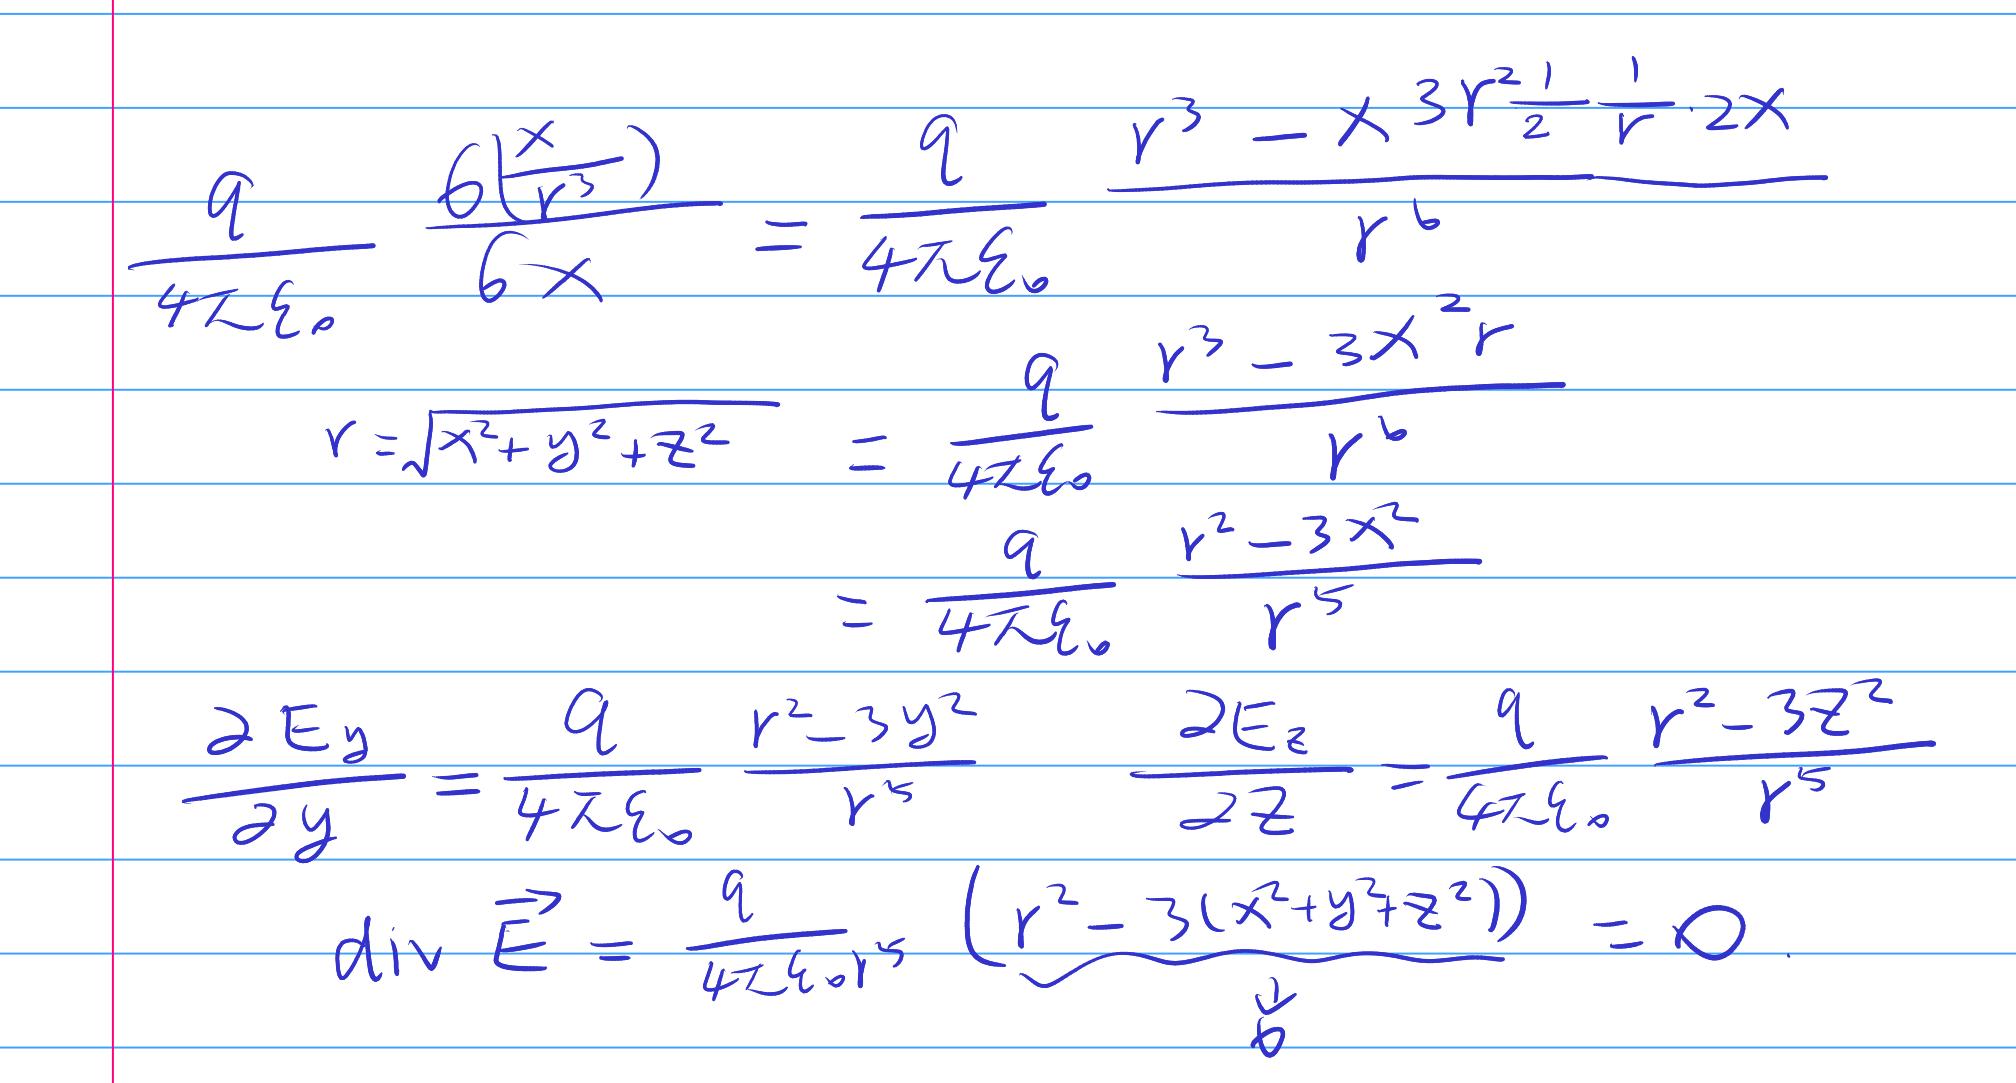 $\frac{q}{4\pi\varepsilon_0} \frac{\partial\left(\frac{x}{r^3}\right)}{\partial x} = \frac{q}{4\pi\varepsilon_0} \frac{r^3 - x 3r^2 \frac{1}{2} \frac{1}{r} \cdot 2x}{r^6}$
$r = \sqrt{x^2 + y^2 + z^2} \quad = \frac{q}{4\pi\varepsilon_0} \frac{r^3 - 3x^2 r}{r^6}$
$= \frac{q}{4\pi\varepsilon_0} \frac{r^2 - 3x^2}{r^5}$
$\frac{\partial E_y}{\partial y} = \frac{q}{4\pi\varepsilon_0} \frac{r^2 - 3y^2}{r^5} \quad \frac{\partial E_z}{\partial z} = \frac{q}{4\pi\varepsilon_0} \frac{r^2 - 3z^2}{r^5}$
$\text{div } \vec{E} = \frac{q}{4\pi\varepsilon_0 r^5} (\underbrace{r^2 - 3(x^2 + y^2 + z^2)}_{\downarrow 0}) = 0.$